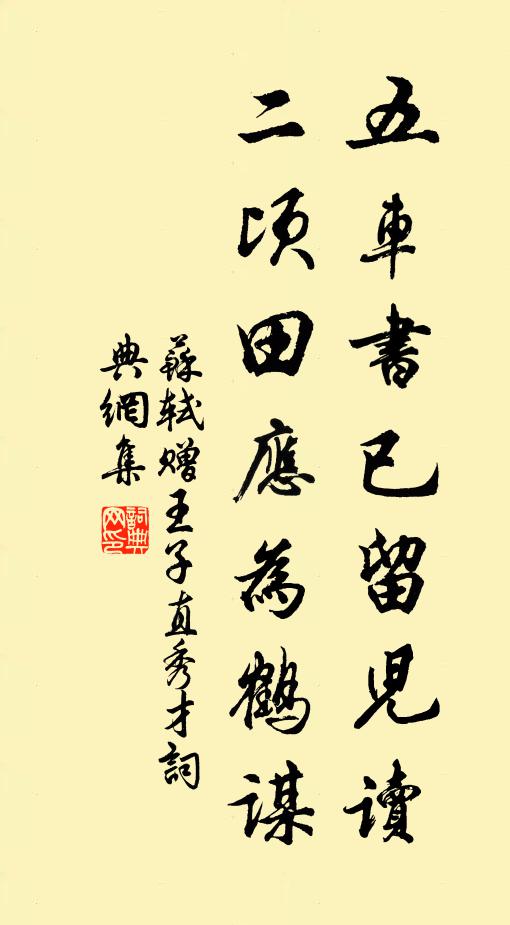 五車書已留兒讀
二頃田應為鶴謀
蘇軾贈王子直秀才詞
典網集
詞典網印